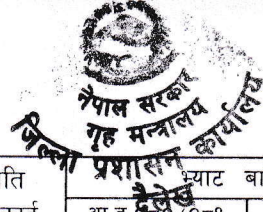 नेपाल सरकार
गृह मन्त्रालय
जिल्ला प्रशासन कार्यालय
दैलेख
ति
भ्याट बा